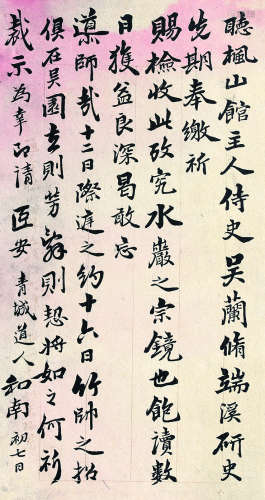 聽楓山館主人侍史吳蘭脩端溪研史
先期奉繳祈
賜檢收此攷究水巖之宗鏡也飽讀數
日獲益良深曷敢忘
導師哉十二日際庭之約十六日竹師之招
俱在吳園去則芳辭則恝將如之何祈
裁示為幸即請 匝安 青城道人和南初七日